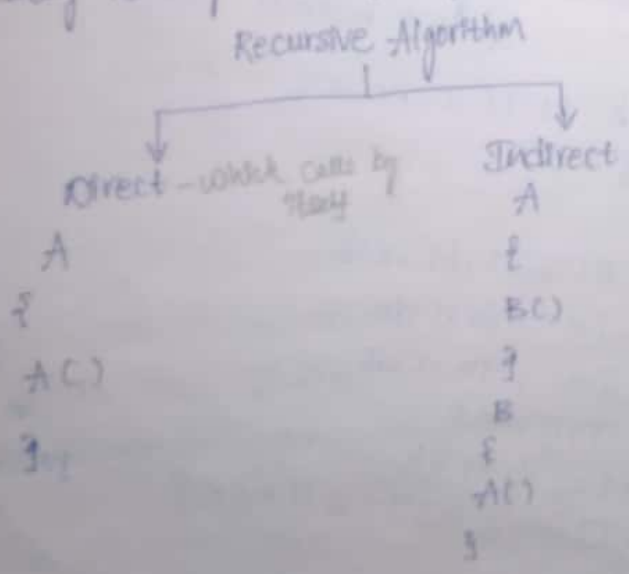 Recursive Algorithm
Direct - which calls by
itself
A
{
A()
}
Indirect
A
{
B()
}
B
{
A()
}